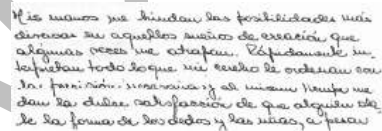 Mis manos me brindan las posibilidades más
diversas en aquellos sueños de creación que
algunas veces me atrapan. Rápidamente in-
terpretan todo lo que mi cerebro le ordenan con
la precisión necesaria y al mismo tiempo me
dan la dulce satisfacción de que alguien da
le la forma de los dedos y las uñas, a pesar